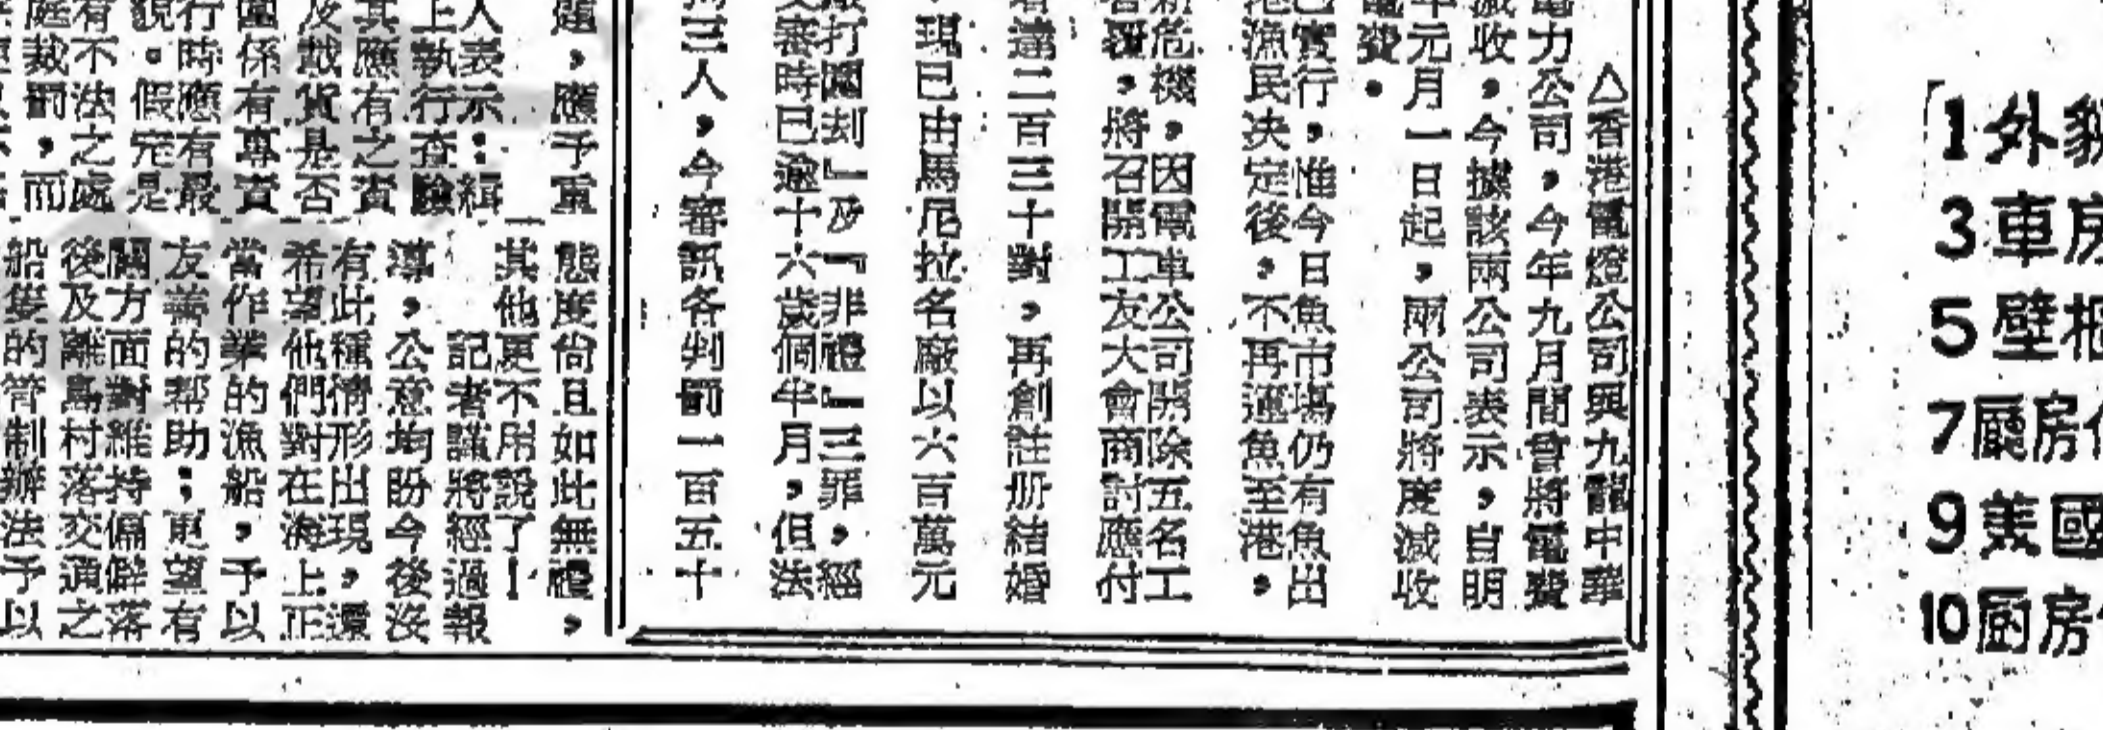 △香港電燈公司與九龍中華
電力公司,今年九月間會將電費
減收,今據該兩公司表示,自明
年元月一日起,兩公司將度減收
電費。
已實行,惟今日魚市塲仍有魚出
港漁民决定後,不再運魚至港。
新危機,因電車公司開除五名工
將召開工友大會商討應付
達二百三十對,再創註册結婚
現已由馬尼拉名廠以六百萬元
打圍刦』及『非禮』三罪,經
審時已逾十六歲個半月,但法
三人,今審訊各判罰一百五十
題,應予重
人表示:緝
上執行查驗
其應有之責
及戴貨是否
圍係有專責
行時應有最
貌。假定是
有不法之處
庭裁罰,而
態度尙且如此無禮,
其他更不用說了!
記者謹將經過報
導,公意均盼今後沒
有此種情形出現,還
希望他們對在海上正
當作業的漁船,予以
友善的帮助;更望有
關方面對維持偏僻落
後及離島村落交通之
船隻的管制辦法予以
1外貌
3車房
5壁
7廳房
9美國
10厨房